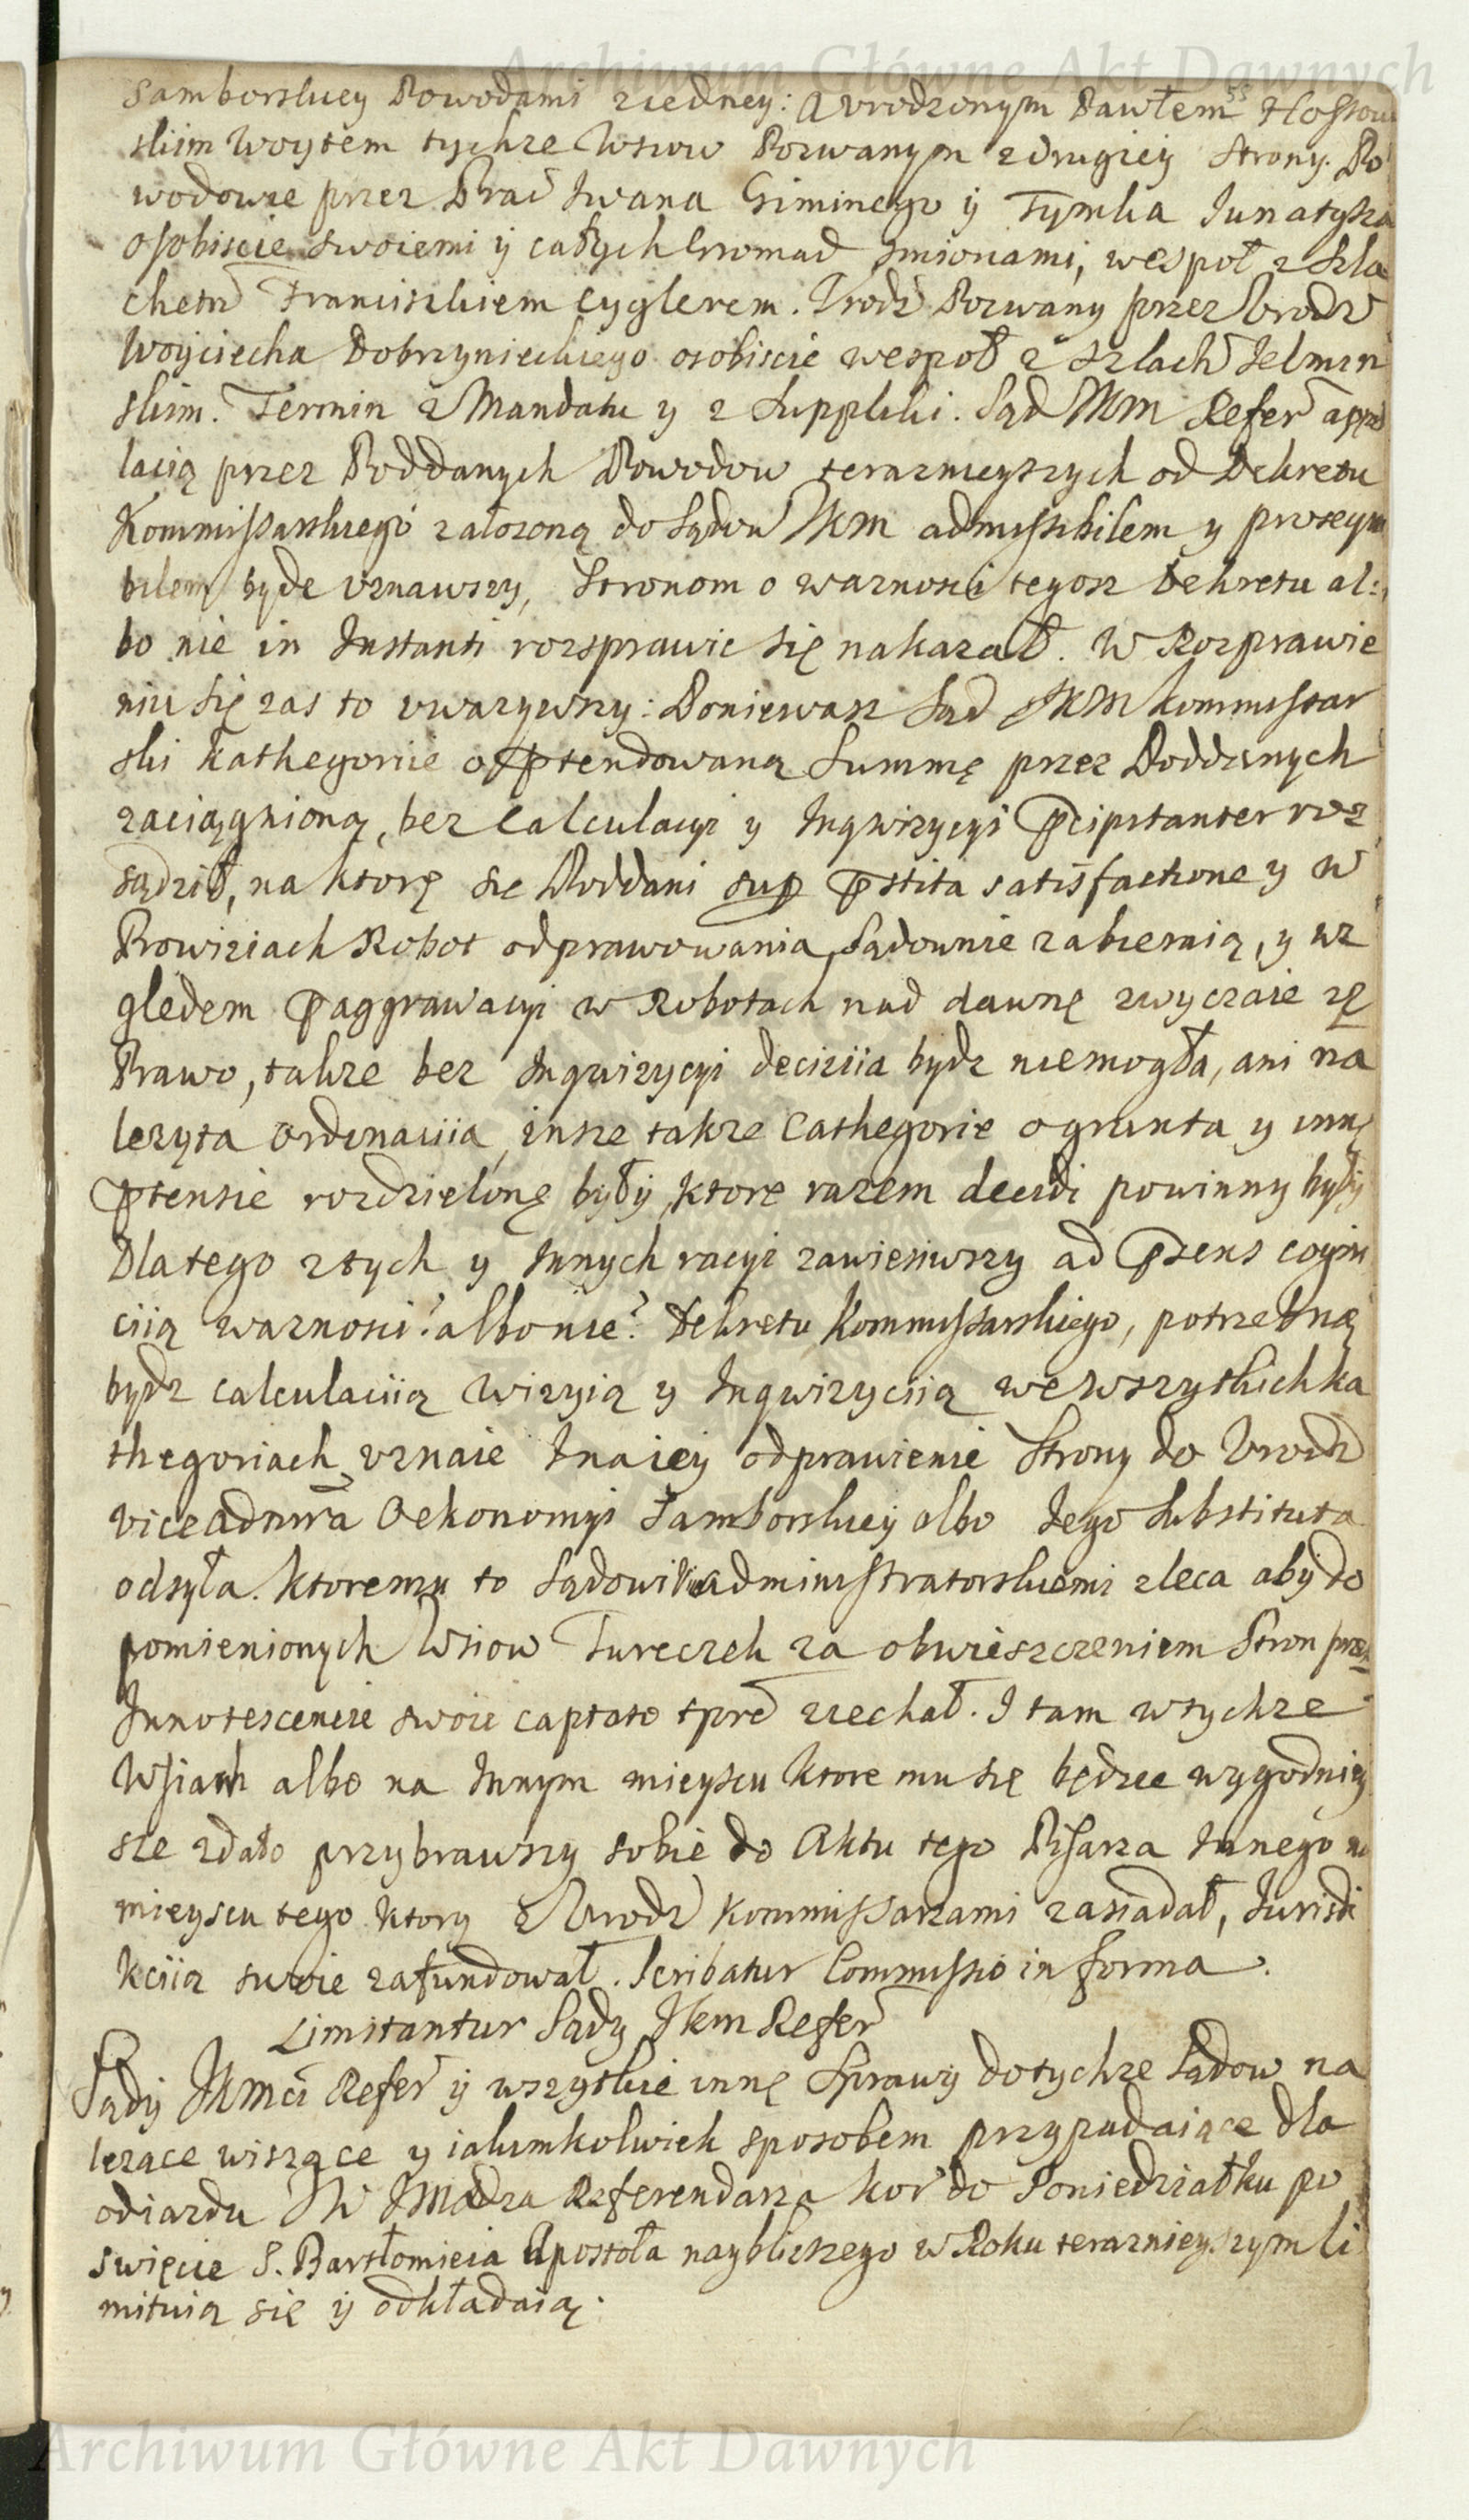 Archiwum Główne Akt Dawnych
Samborskiey Powodami z iedney: A Urodzonym Pawłem Hossow
skim Woytem tychze Wsiow Pozwanym z drugiey Strony. Po
wodowie przez Prac Iwana Giminego ÿ Tymka Iunatysza
osobiscie swoiemi ÿ całych Gromad Imionami, wespoł z Szla
chetn Franciszkiem Cyglerem. Urodz Pozwany przez Urodz
Woyciecha Dobrzynieckiego osobiscie wespoł z Szlach Ielmin
skim. Termin z Mandatu y z Suppliki. Sąd IKM Refer appel
lacią przez Poddanych Powodow teraznieyszych od Dekretu
Kommissarskiego załozoną do Sądow IKM admissibilem y proseqm
bilem bydz uznawszy, Stronom o waznosci tegosz Dekretu al:
bo nie in Instanti rozsprawic się nakazał. W Rozprawie
niu się zas to uwazywszy: Poniewasz Sąd IKM Kommissar
ski kathegorie o ꝓtendowaną Summę przez Poddanych
zaciągnioną, bez calculacyi y Inqwizycyi ꝓcipitanter roz
sądził, na ktorę sie Poddani sup ꝓstita satisfactione y w
Prowiziach Robot odprawowania Sądownie zabieraią, y wz
ględem ꝓaggrawacyi w Robotach nad dawnę zwyczaie zę
Prawo, takze bez Inqwizycyi deciziia bydz niemogła, ani na
lezyta ordinaciia, insze takze Cathegorie o grunta y innę
ꝓtensie rozdzielonę byłÿ, ktorę razem decidi powinny byłÿ
Dlatego z tych y Innych racyi zawiesiwszy ad ꝓsens cogni
ciią waznosci? albo nie? Dekretu Kommissarskiego, potrzebną
bydz calculaciią wizyią y Inqwizyciią we wszystkich ka
thegoriach uznaie Inaiey odprawienie Strony do Urodz
viceadmra Oekonomyi Samborskiey albo Iego Substituta
odsyła. Ktoremu to Sądowi Viceadministratorskiemu zleca aby do
pomienionych Wsiow Tureczek za obwieszczeniem Stron przez
Innotescencie swoie captato tpre ziechał. I tam w tychze
Wsiach albo na Innym mieyscu ktore mu się będzie wygodniey
sze zdało przybrawszy sobie do Aktu tego Pisarza Innego na
mieyscu tego ktory z Urodz Kommissarzami zasiadał, Iurisdi
kciią swoie zafundował. Scribatur Commissio in forma.
Limitantur Sądy IKM Refer
Sądÿ IKMci Refer ÿ wszystkie innę Sprawÿ do tychze Sądow na
lezące wiszące y iakimkolwiek sposobem przypadaiące dla
odiazdu IW IMci Xdza Referendarza Kor do Poniedziałku po
swięcie S. Bartłomieia Apostoła naybliszego w Roku teraznieyszym li
mituią się ÿ odkładaią.
Archiwum Główne Akt Dawnych